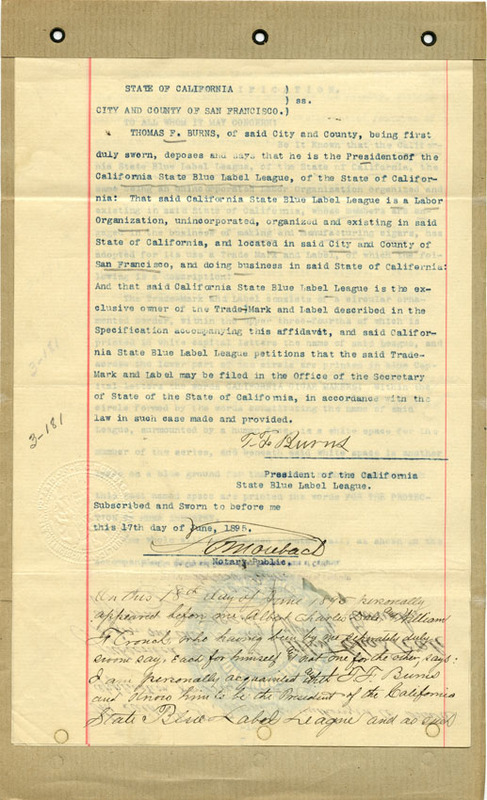 STATE OF CALIFORNIA )
) ss.
CITY AND COUNTY OF SAN FRANCISCO.)
THOMAS F. BURNS, of said City and County, being first
duly sworn, deposes and says that he is the President of the
California State Blue Label League, of the State of Califor-
nia: That said California State Blue Label League is a Labor
Organization, unincorporated, organized and existing in said
State of California, and located in said City and County of
San Francisco, and doing business in said State of California:
And that said California State Blue Label League is the ex-
clusive owner of the Trade-Mark and Label described in the
Specification accompanying this affidavit, and said Califor-
nia State Blue Label League petitions that the said Trade-
Mark and Label may be filed in the Office of the Secretary
of State of the State of California, in accordance with the
law in such case made and provided.
3-181
3-181
T. F. Burns
President of the California
State Blue Label League.
Subscribed and Sworn to before me
this 17th day of June, 1895.
Notary Public.
On this 18th day of June 1895 personally
appeared before me Albert Charles and William
F Cronch who having been by me separately duly
sworn say, each for himself & not one for the other, says:
I am personally acquainted with T. F. Burns
and know him to be the President of the California
State Blue Label League and as such